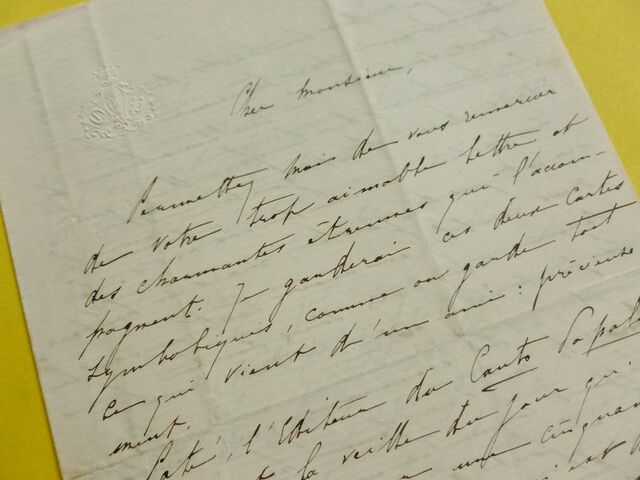 Cher Monsieur,
Permettez moi de vous remercier
de votre trop aimable lettre et
des charmantes étrennes qui l'accom-
pagnent. Je garderai ces deux cartes
symboliques, comme on garde tout
ce qui vient d'un ami : précieuse
ment.
l'Editeur du Canto
la veille du jour qui
une cinquan